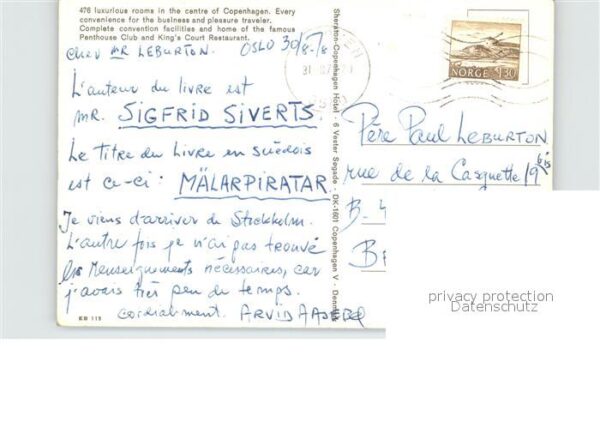 476 luxurious rooms in the centre of Copenhagen. Every
convenience for the business and pleasure traveler.
Complete convention facilities and home of the famous
Penthouse Club and King's Court Restaurant.
Cher MR LEBURTON. OSLO 30/8-78
L'auteur du livre est
MR. SIGFRID SIVERTS.
Le Titre du Livre en suédois
est ce-ci: MÄLARPIRATAR
Je viens d'arriver de Stockholm.
L'autre fois je n'ai pas trouvé
les Renseignements nécessaires, car
j'avais très peu de temps.
cordialement. ARVID
KB 113
Sheraton-Copenhagen Hotel - 6 Vester Søgade - DK-1601 Copenhagen V - Denmark
NORGE 130
Père Paul LEBURTON
rue de la Casquette 19 bis
B-4
privacy protection
Datenschutz